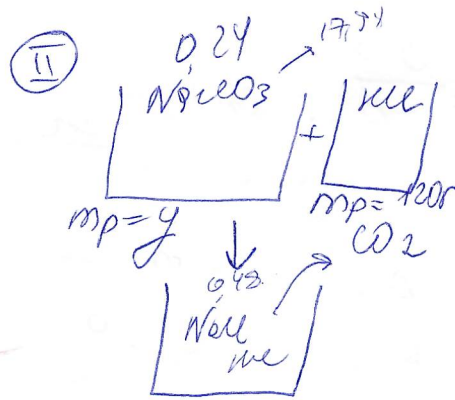 II
0,24
Na2CO3
+
HCl
mр= y
mр= 120г
CO2
0,48
NaCl
HCl